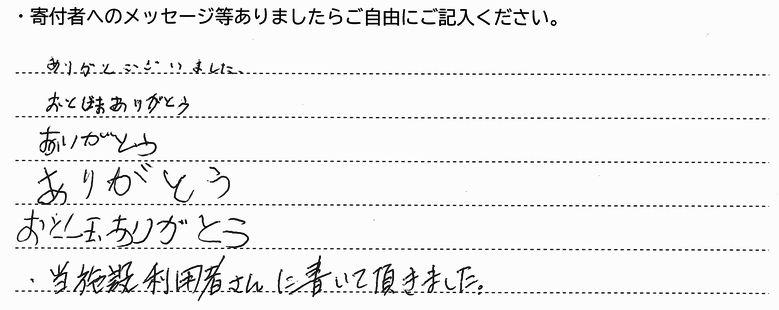 ・寄付者へのメッセージ等ありましたらご自由にご記入ください。
ありがとうございました。
おとしだまありがとう
ありがとう
ありがとう
おとし玉ありがとう
・当施設利用者さんに書いて頂きました。